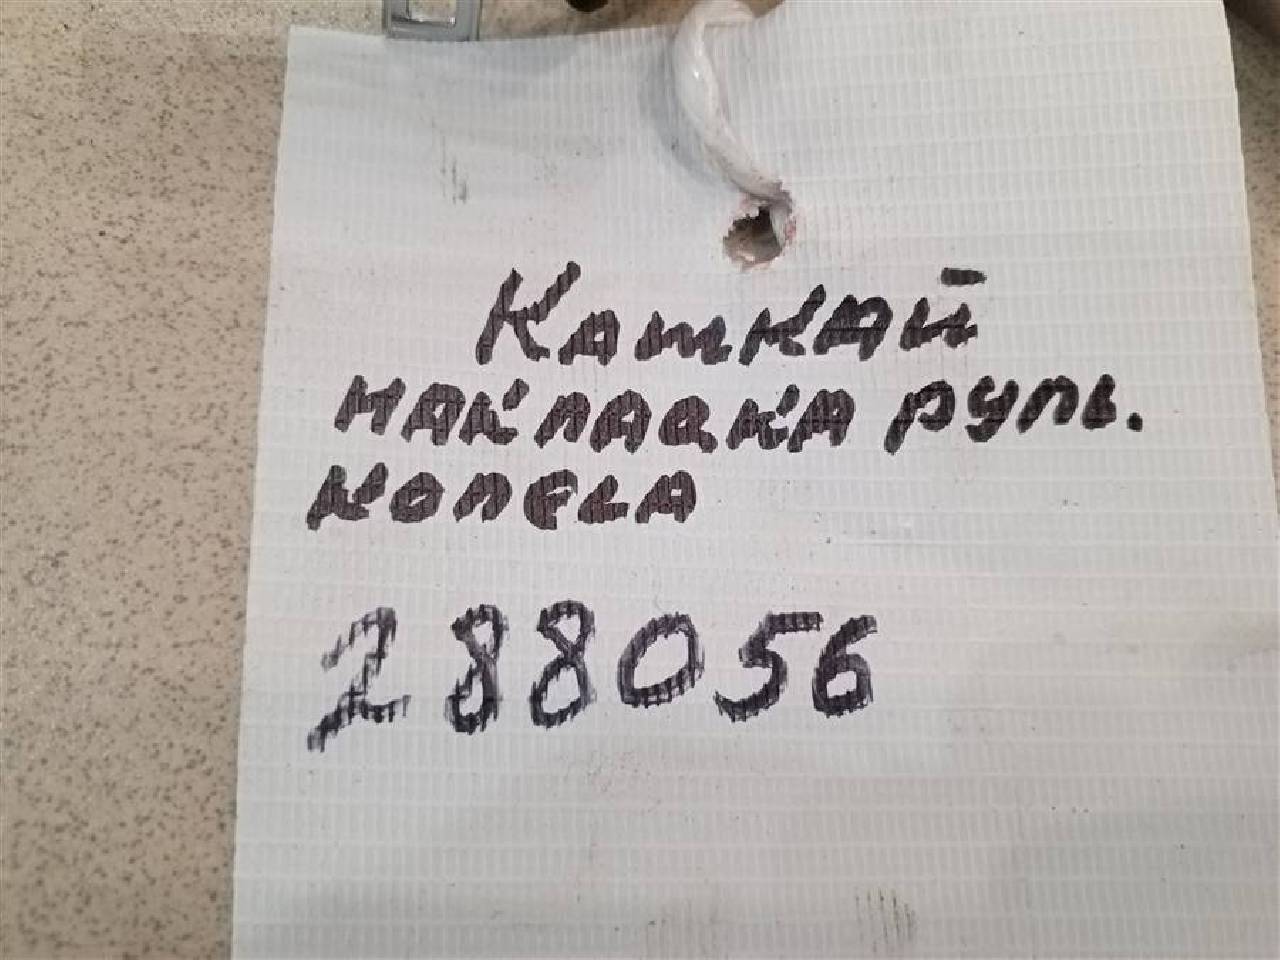 Кашкай
накладка руль.
колеса
288056